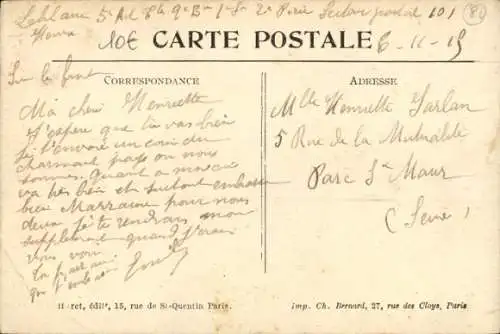 Leblanc 5e Art 8e 9e Bie 1e Sn 2e Pièce Secteur postal 101
80
10€
CARTE POSTALE
6-11-15
Sur le front
CORRESPONDANCE
ADRESSE
Ma chère Henriette
J'espère que tu vas bien
Je t'envoie un coin du
charmant pays où nous
sommes. quant à moi ça
va très bien et surtout embrasse
bien Marraine pour nous
deux je te rendrai mon
supplément quand j'irai
vous voir
qui t'embrasse
Mlle Henriette Jarlan
5 Rue de la Mutualité
Parc St Maur
(Seine)
H. ret, édit., 15, rue de St-Quentin Paris.
Imp. Ch. Bernard, 27, rue des Cloys, Paris.